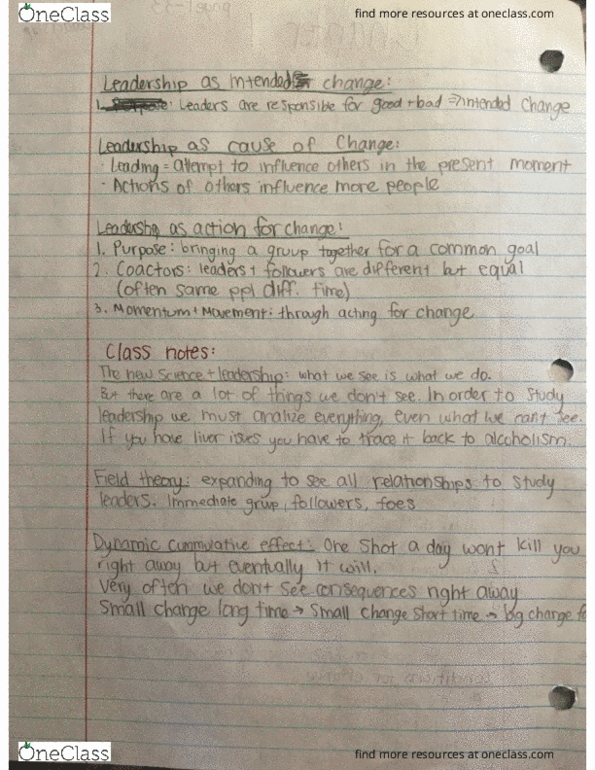 OneClass
find more resources at oneclass.com
Leadership as intended change:
1. Leaders are responsible for good + bad => intended change
Leadership as cause of change:
· Leading = attempt to influence others in the present moment
· Actions of others influence more people
Leadership as action for change:
1. Purpose: bringing a group together for a common goal
2. Coactors: leaders + followers are different but equal
(often same ppl diff. time)
3. Momentum + Movement: through acting for change
Class notes:
The new science + leadership: what we see is what we do.
But there are a lot of things we don't see. In order to study
leadership we must analize everything, even what we cant see.
If you have liver issues you have to trace it back to alcoholism.
Field theory: expanding to see all relationships to study
leaders. Immediate grup, followers, foes
Dynamic cummulative effect: One shot a day wont kill you
right away but eventually it will.
Very often we don't see consequences right away
Small change long time → Small change short time → big change
OneClass
find more resources at oneclass.com